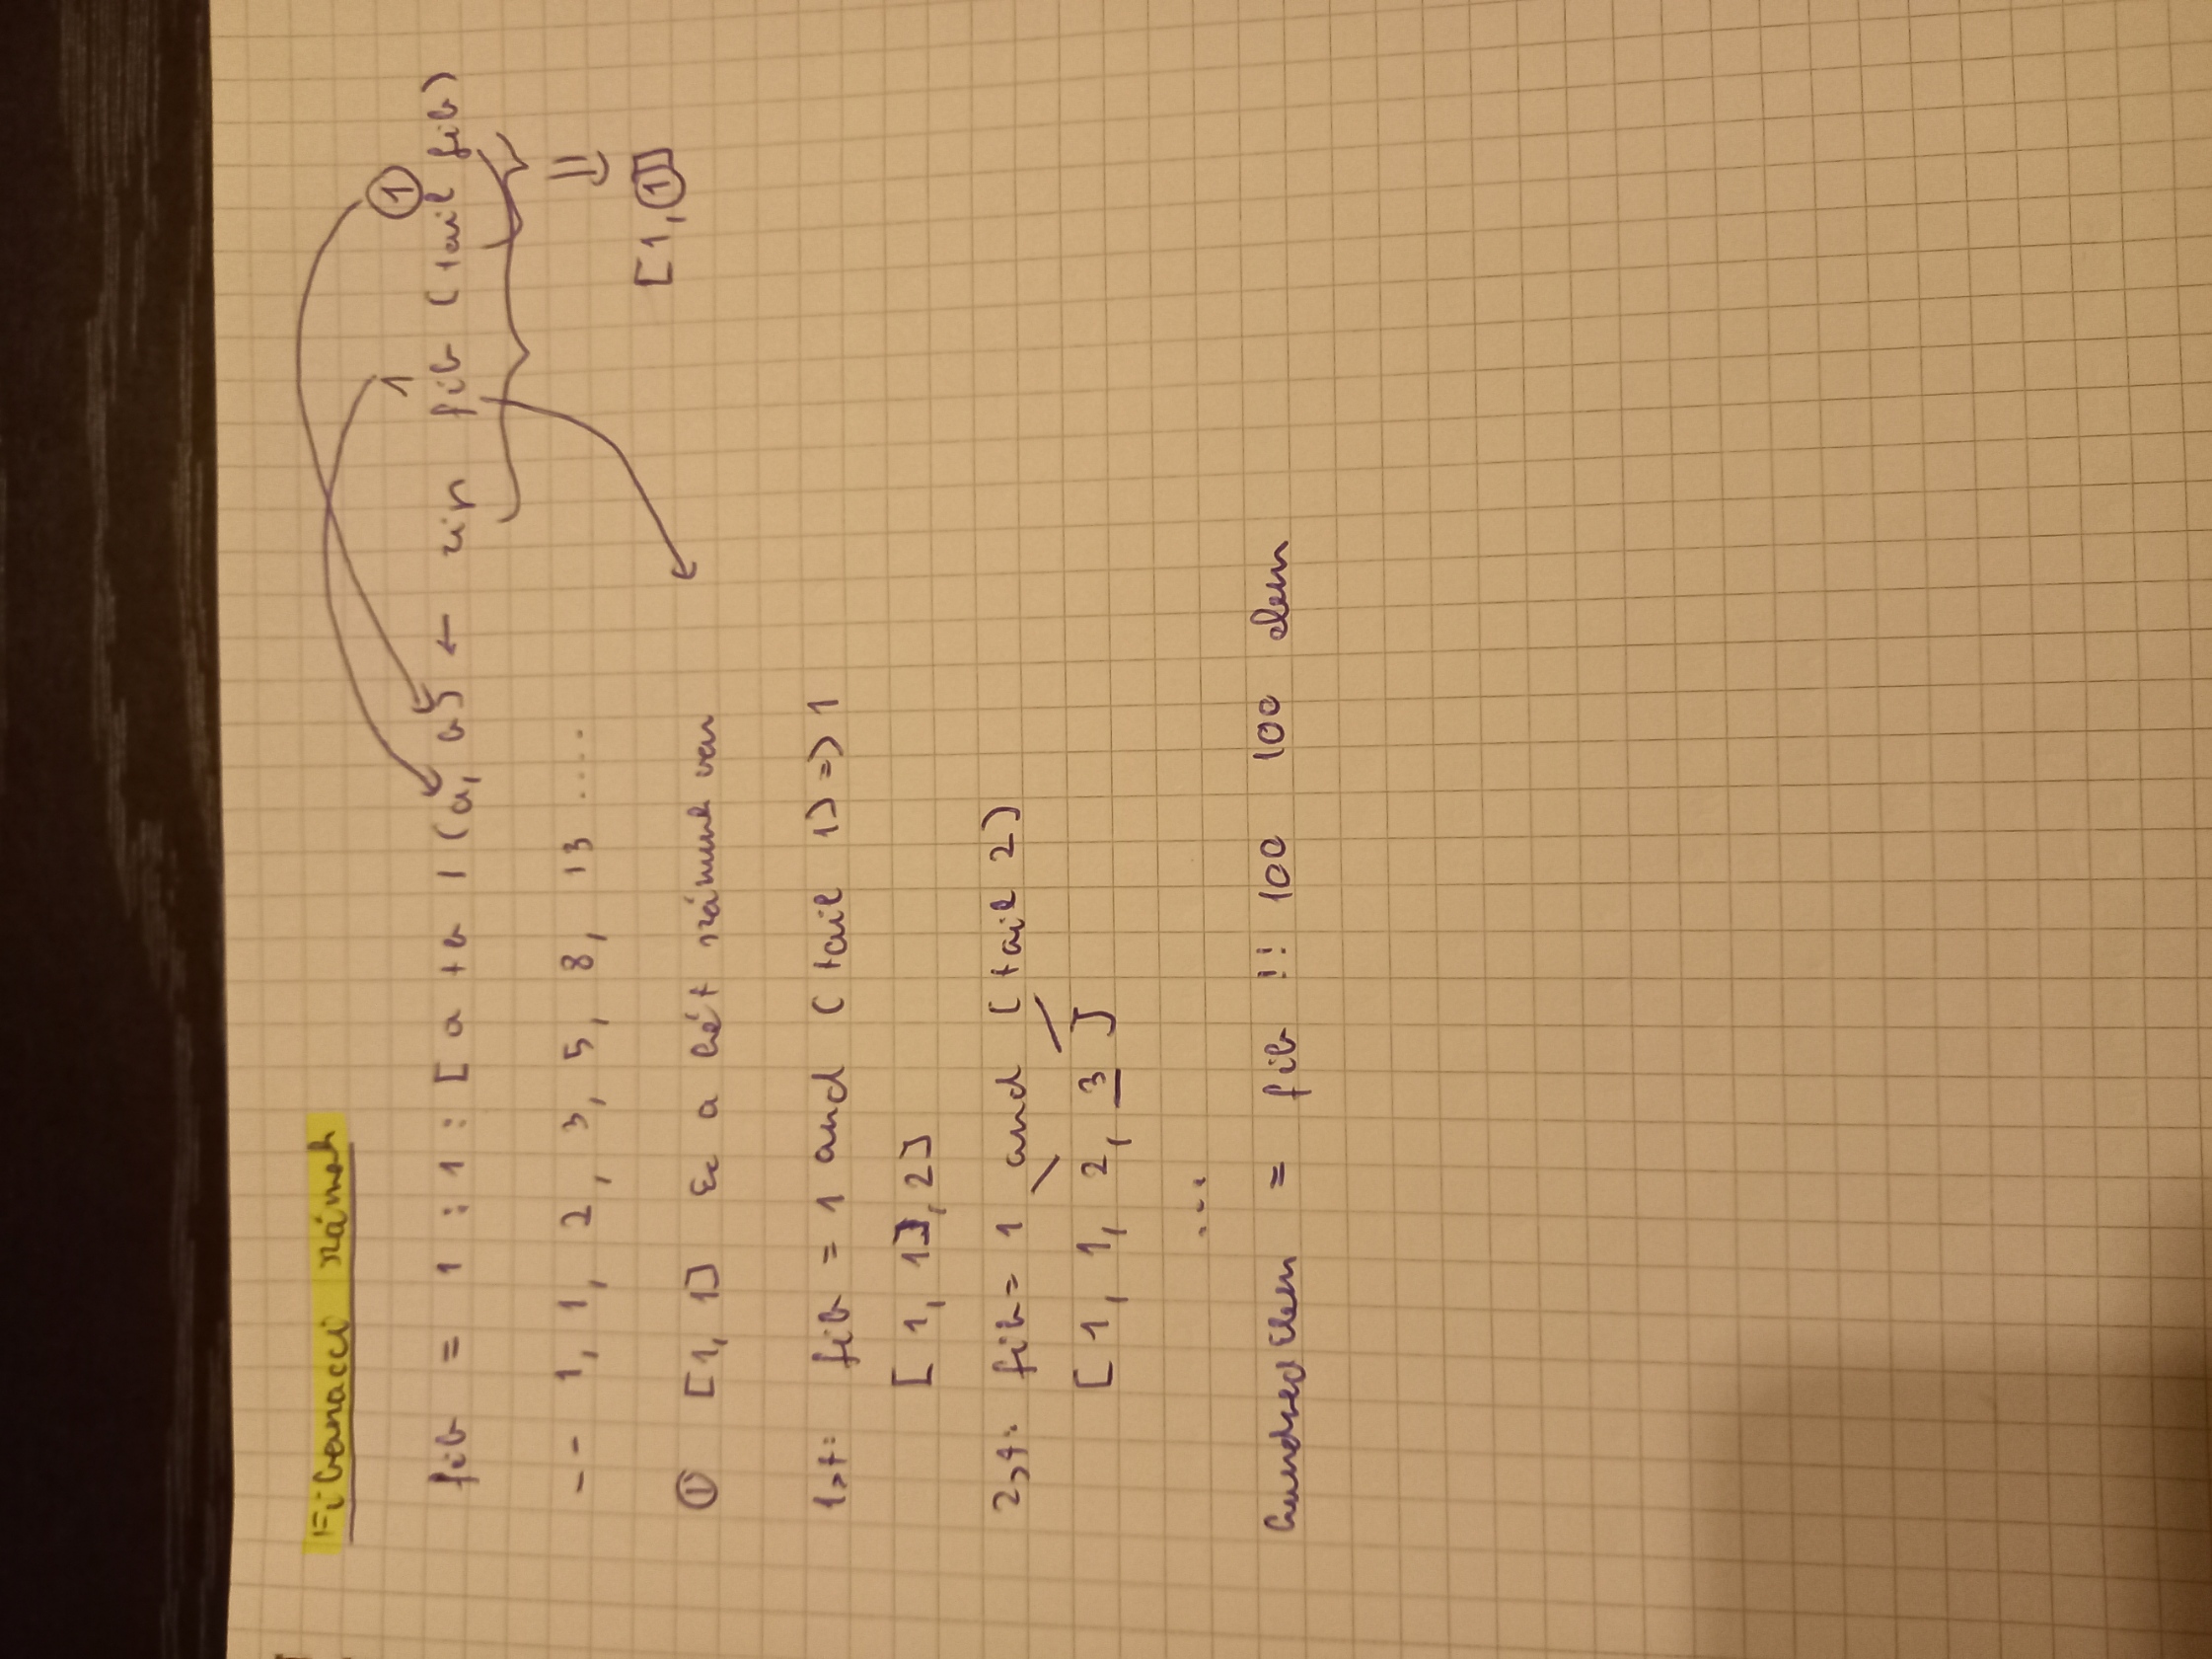 Fibonacci számok
1 1
fib = 1 : 1 : [ a + b | (a, b) ← zip fib (tail fib)
-- 1, 1, 2, 3, 5, 8, 13 ....
[1, 1]
① [1, 1] Ez a két számunk van
1st: fib = 1 and (tail 1) => 1
[ 1, 1], 2]
2st: fib = 1 and (tail 2)
[ 1, 1, 2, 3 ]
...
hundredElem = fib !! 100 100 elem